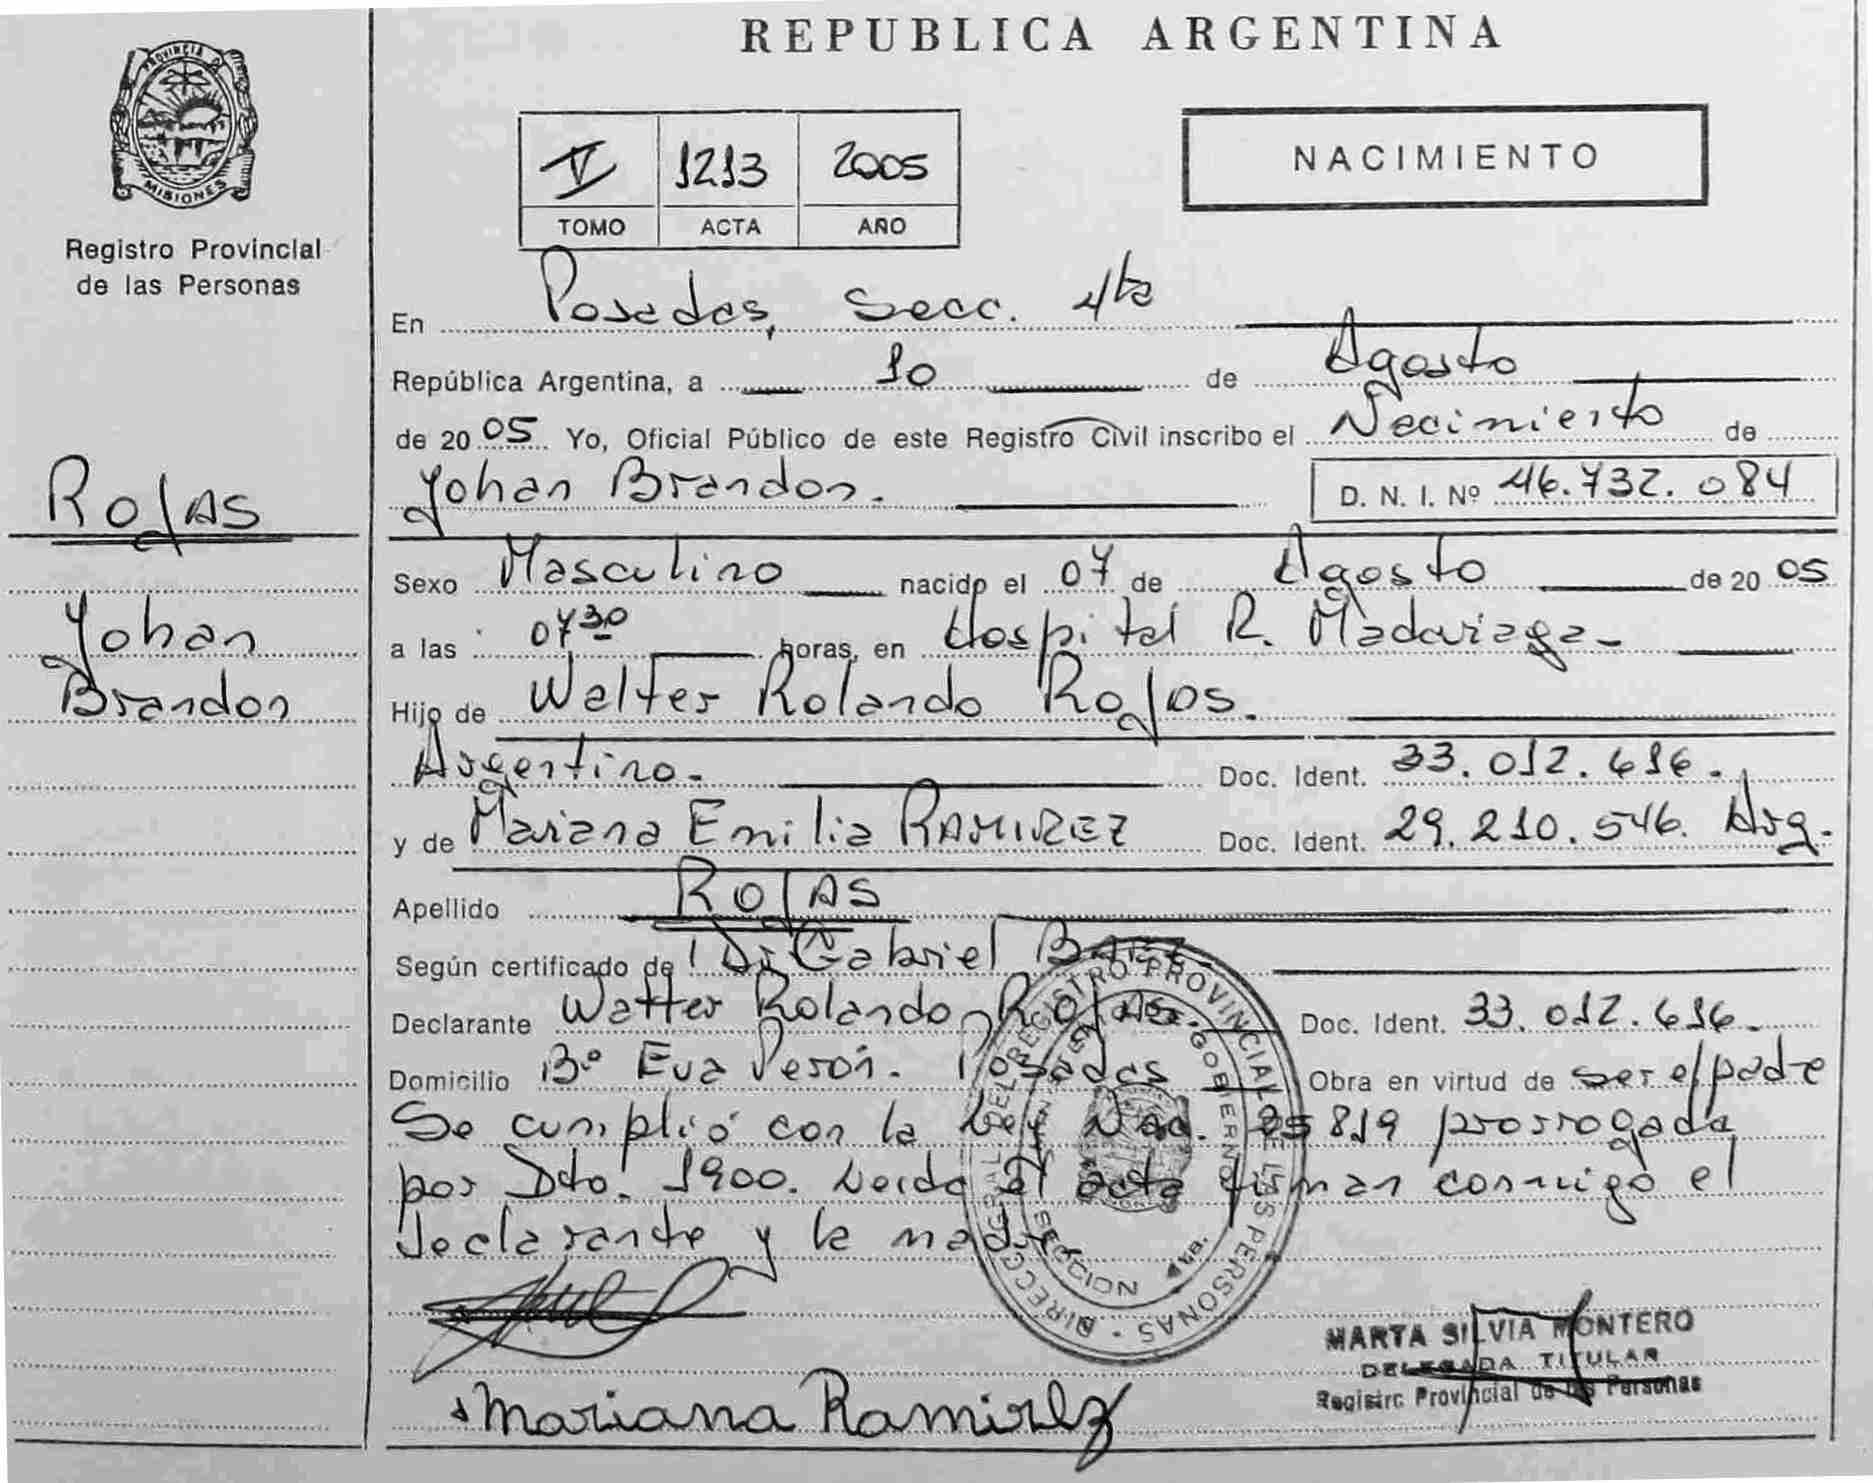 REPUBLICA ARGENTINA
PROVINCIA DE MISIONES
Registro Provincial
de las Personas
V 1213 2005
TOMO ACTA AÑO
NACIMIENTO
En Posadas, Secc. 4ta
República Argentina, a 10 de Agosto
de 20 05 Yo, Oficial Público de este Registro Civil inscribo el Nacimiento de
Yohan Brandon. D. N. I. Nº 46.732.084
ROJAS
Yohan
Brandon
Sexo Masculino nacido el 07 de Agosto de 20 05
a las 07 30 horas, en Hospital R. Madariaga-
Hijo de Walter Rolando Rojas.
Argentino- Doc. Ident. 33.012.616.
y de Mariana Emilia RAMIREZ Doc. Ident. 29.210.546. Arg.
Apellido ROJAS
Según certificado de Dr Gabriel
Declarante Walter Rolando ROJAS. Doc. Ident. 33.012.616.
Domicilio Bº Eva Perón. Posadas Obra en virtud de ser el padre
Se cumplió con la Ley Nac. 25819 prorrogada
por Dto. 1900. Leida el acta firman conmigo el
declarante y la madre
DIRECCION GRAL DEL REGISTRO PROVINCIAL DE LAS PERSONAS
DE GOBIERNO
SECCION 4ta.
MARTA SILVIA MONTERO
DELEGADA TITULAR
Registro Provincial de las Personas
Mariana Ramirez